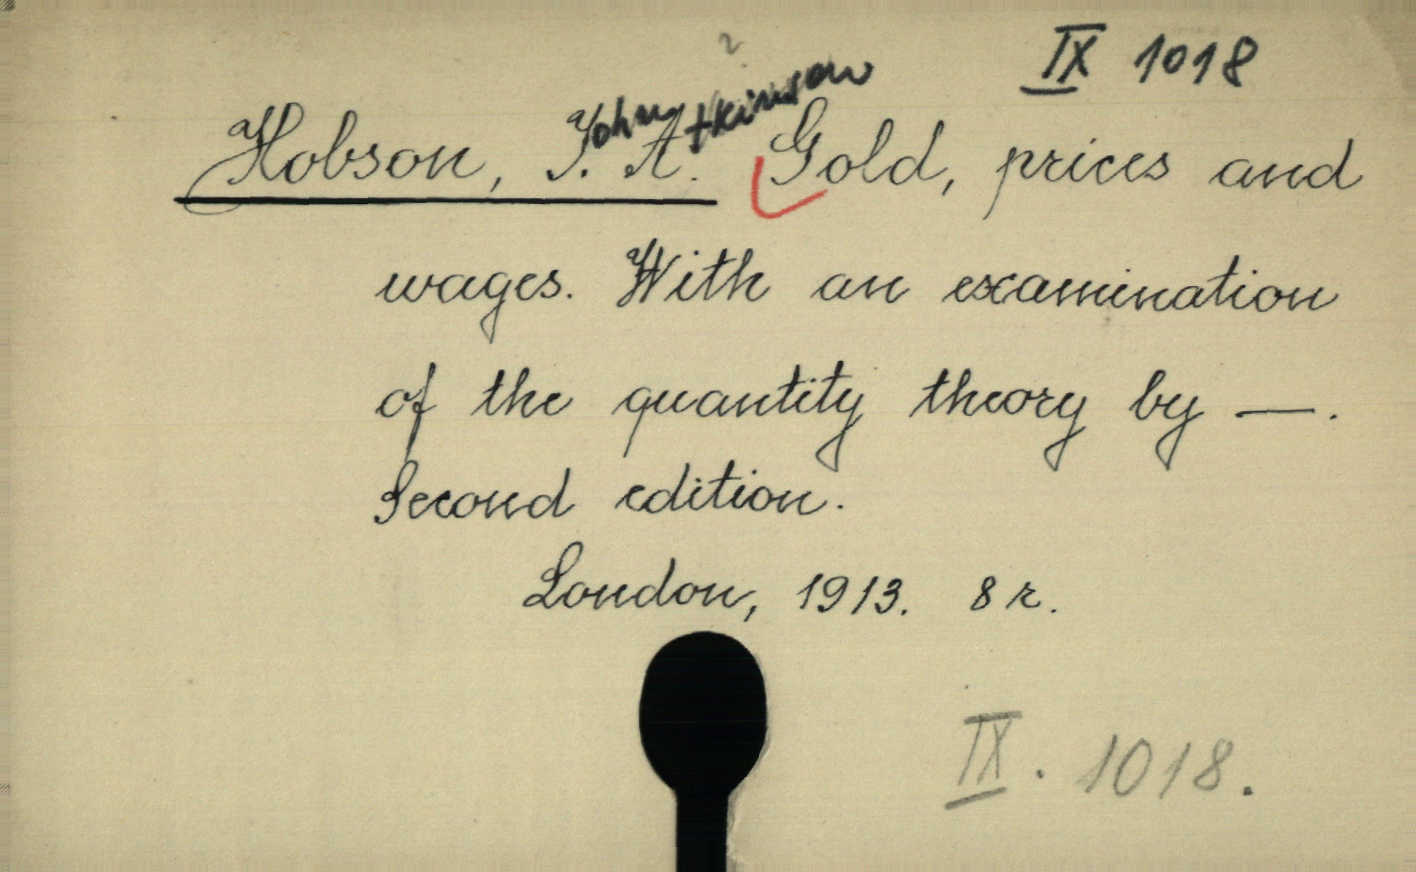 IX 1018
John Atkinson
Hobson, J. A. Gold, prices and
wages. With an examination
of the quantity theory by —.
Second edition.
London, 1913. 8 r.
IX. 1018.